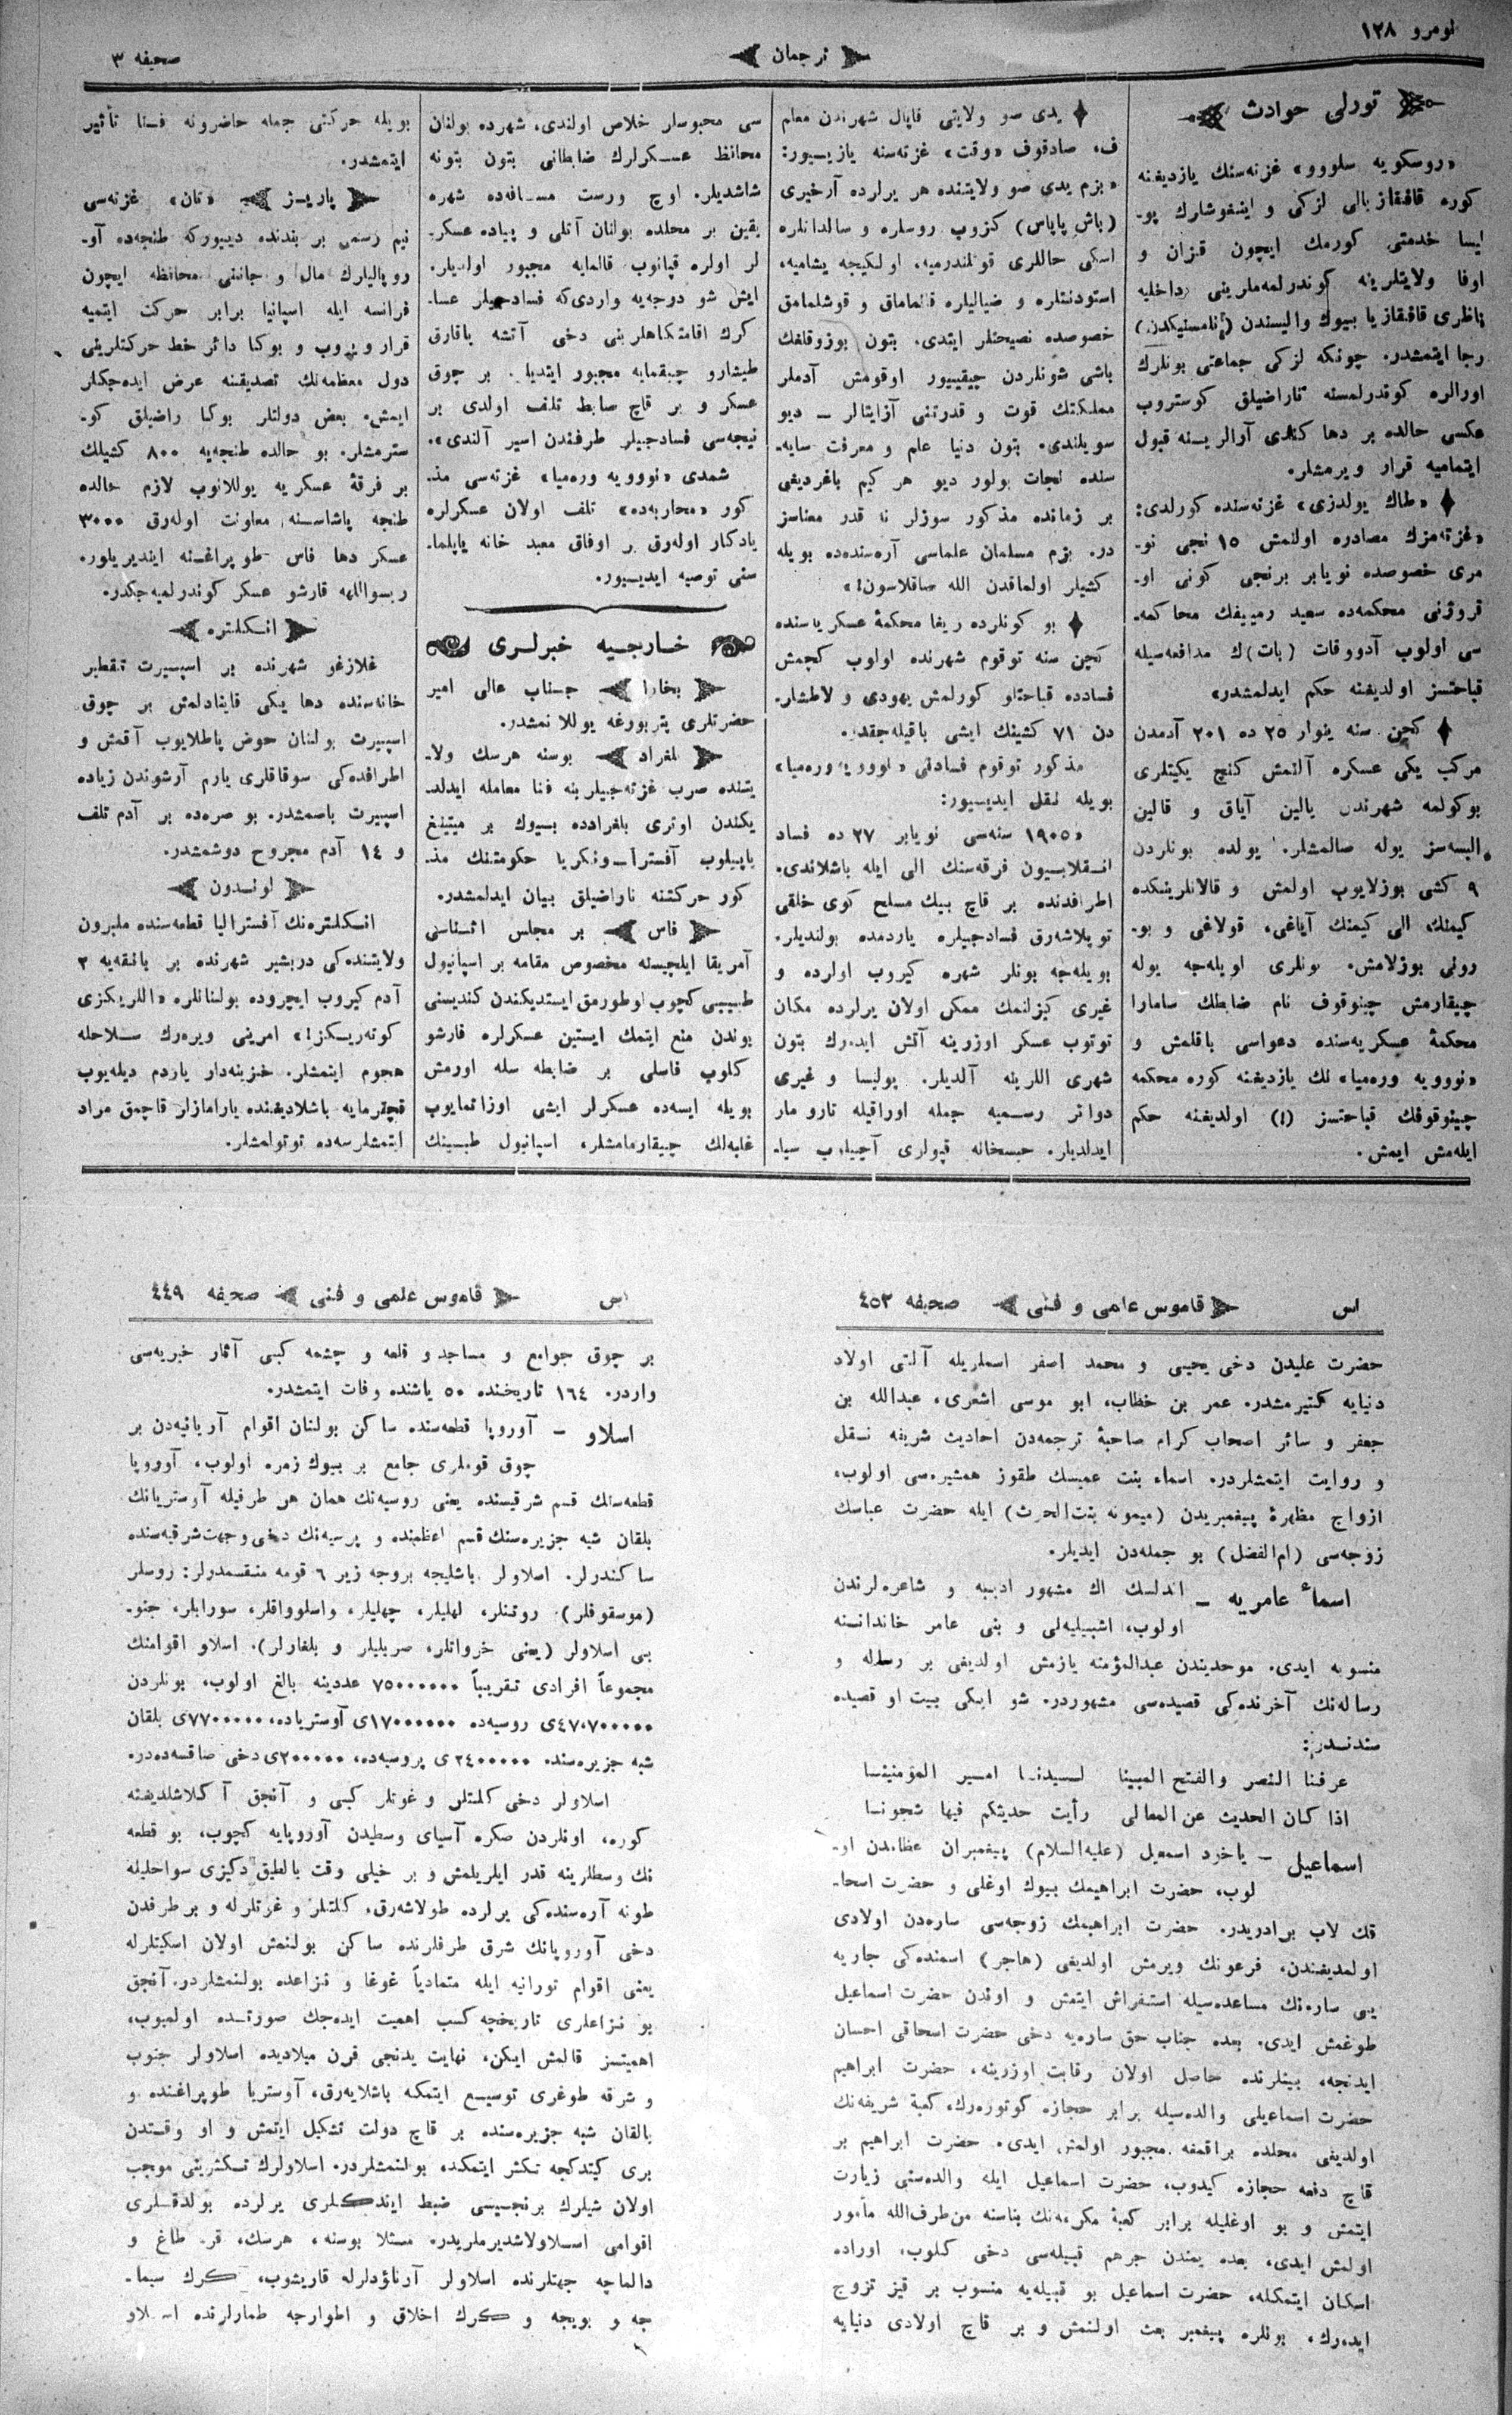 نومرو ١٢٨
ترجمان
صحیفه ٣
تورلی حوادث
«روسکویه سلووو» غزته‌سنك یازدیغنه
کوره قافقاز بالی لزکی و اینغوشلرك پو-
لیسا خدمتی کورمك ایچون قزان و
اوفا ولایتلرینه کوندرلمه‌ملرینی داخلیه
ناظری قافقازیا بیوك والیسندن
رجا ایتمشدر. چونکه لزکی جماعتی بونلرك
اورالره کوندرلمسنه ناراضیلق کوستروب
عکسی حالده بر دها کندی آرالرینه قبول
ایتمامیه قرار ویرمشلر.
«طاك یولدزی» غزته‌سنده کورلدی:
«غزته‌مزك مصادره اولنمش ١٥ نجی نو-
مری خصوصده نویابر برنجی کونی او-
قروژنی محکمه‌ده سعید رمییفك محاکمه-
سی اولوب آدووقات (بات)ك مدافعه‌سیله
قباحتسز اولدیغنه حکم ایدلمشدر»
کچن سنه ینوار ٢٥ ده ٢٠١ آدمدن
مرکب یکی عسکره آلنمش کنج یکیتلری
بوکولمه شهرندن یالین آیاق و قالین
البسه‌سز یوله صالمشلر. یولده بونلردن
٩ کشی بوزلایوب اولمش و قالانلرینکده
کیمنك الی کیمنك آیاغی، قولاغی و بو-
رونی بوزلامش. بونلری اویله‌جه یوله
چیقارمش چینوقوف نام ضابطك سامارا
محکمهٔ عسکریه‌سنده دعواسی باقلمش و
«نوویه وره‌میا» نك یازدیغنه کوره محکمه
چینوقوفك قباحتسز (!) اولدیغنه حکم
ایله‌مش ایمش.
یدی صو ولایتی قاپال شهرندن معلم
ف. صادقوف «وقت» غزته‌سنه یازیییور:
«بزم یدی صو ولایتنده هر یرلرده آرخیری
(باش پاپاس) کزوب روسلره و سالدانلره
اسکی حاللری قوللندرمیه، اولکیجه یشامیه،
استودنتلره و ضیالیلره قاتماماق و قوشلمامق
خصوصده نصیحتلر ایتدی. بتون بوزوقلقك
باشی شونلردن چیقییور اوقومش آدملر
مملکتك قوت و قدرتنی آزایتالر - دیو
سویلندی. بتون دنیا علم و معرفت سایه-
سنده نجات بولور دیو هر کیم باغردیغی
بر زمانده مذکور سوزلر نه قدر معناسز
در. بزم مسلمان علماسی آره‌سنده‌ده بویله
کشیلر اولماقدن الله صاقلاسون!»
بو کونلرده ریغا محکمهٔ عسکریاسنده
کچن سنه توقوم شهرنده اولوب کچمش
فسادده قباحتلو کورلمش یهودی و لاطشلر-
دن ٧١ کشینك ایشی باقیله‌جقدر.
مذکور توقوم فسادنی «نوویه وره‌میا»
بویله نقل ایدییور:
«١٩٠٥ سنه‌سی نویابر ٢٧ ده فساد
انقلابسیون فرقه‌سنك الی ایله باشلاندی.
اطرافدنده بر قاچ بیك مسلح کوی خلقی
توپلاشه‌رق فسادجیلره یاردمده بولندیلر.
بویله‌جه بونلر شهره کیروب اولرده و
غیری کیزلنمك ممکن اولان یرلرده مکان
توتوب عسکر اوزرینه آتش ایده‌رك بتون
شهری اللرینه آلدیلر. پولیسا و غیری
دوائر رسمیه جمله اوراقیله تارومار
ایدلدیلر. حبسخانه قپولری آچیلوب سیا-
سی محبوسلر خلاص اولندی، شهرده بولنان
محافظ عسکرلرك ضابطانی بتون بتونه
شاشدیلر. اوچ ورست مسافه‌ده شهره
یقین بر محلده بولنان آتلی و پیاده عسکر-
لر اولره قپانوب قالمایه مجبور اولدیلر.
ایش شو درجه‌یه واردی‌که فسادجیلر عسا-
کرك اقامتکاهلرینی دخی آتشه یاقارق
طیشارو چیقمایه مجبور ایتدیلر. بر چوق
عسکر و بر قاچ ضابط تلف اولدی بر
نیجه‌سی فسادجیلر طرفندن اسیر آلندی».
شمدی «نوویه وره‌میا» غزته‌سی مذ-
کور «محاربه‌ده» تلف اولان عسکرلره
یادکار اوله‌رق بر اوفاق معبد خانه یاپلما-
سنی توصیه ایدییور.
خارجیه خبرلری
بخارا جناب عالی امیر
حضرتلری پتربورغه یوللانمشدر.
بلغراد بوسنه هرسك ولا-
یتنده صرب غزته‌جیلرینه فنا معامله ایدلد-
یکندن اوتری بلغرادده بیوك بر میتینغ
یاپیلوب آفستر‌ا-ونکریا حکومتنك مذ-
کور حرکتنه ناراضیلق بیان ایدلمشدر.
فاس بر مجلس اثناسی
آمریقا ایلچیسنه مخصوص مقامه بر اسپانیول
طبیبی کچوب اوطورمق ایستدیکندن کندیسنی
بوندن منع ایتمك ایستین عسکرلره قارشو
کلوب فاسلی بر ضابطه سله اورمش
بویله ایسه‌ده عسکرلر ایشی اوزاتمایوب
غلبه‌لك چیقارمامشلر، اسپانیول طبیبنك
بویله حرکتی جمله حاضرونه فنا تأثیر
ایتمشدر.
پاریز «تان» غزته‌سی
نیم رسمی بر بندنده دییورکه طنجه‌ده آو-
روپالیلرك مال و جاننی محافظه ایچون
فرانسه ایله اسپانیا برابر حرکت ایتمیه
قرار ویروب و بوکا دائر خط حرکتلرینی
دول معظمه‌نك تصدیقنه عرض ایده‌جکلر
ایمش. بعض دولتلر بوکا راضیلق کو-
سترمشلر. بو حالده طنجه‌یه ٨٠٠ کشیلك
بر فرقهٔ عسکریه یوللانوب لازم حالده
طنجه پاشاسنه معاونت اوله‌رق ٣٠٠٠
عسکر دها فاس طوپراغنه ایندیریلور.
ریسواللهه قارشو عسکر کوندرلمیه‌جکدر.
انکلتره
غلازغو شهرنده بر اسپیرت تقطیر
خانه‌سنده دها یکی قاینادلمش بر چوق
اسپیرت بولنان حوض پاطلایوب آقمش و
اطرافده‌کی سوقاقلری یارم آرشوندن زیاده
اسپیرت باصمشدر. بو صره‌ده بر آدم تلف
و ١٤ آدم مجروح دوشمشدر.
لوندون
انکلتره‌نك آفسترالیا قطعه‌سنده ملبرون
ولایتنده‌کی دربشیر شهرنده بر بانقه‌یه ٢
آدم کیروب ایچروده بولنانلره «اللریکزی
کوته‌ریکز!» امرینی ویره‌رك سلاحله
هجوم ایتمشلر. خزینه‌دار یاردم دیله‌یوب
قچقرمایه باشلادیغنده یارامازلر قاچمق مراد
ایتمشلرسه‌ده توتولمشلر.
اس قاموس علمی و فنی صحیفه ٤٥٣
حضرت علیدن دخی یحیی و محمد اصغر اسملریله آلتی اولاد
دنیایه کتیرمشدر. عمر بن خطاب، ابو موسی اشعری، عبدالله بن
جعفر و سائر اصحاب کرام صاحبهٔ ترجمه‌دن احادیث شریفه نقل
و روایت ایتمشلردر. اسماء بنت عمیسك طقوز همشیره‌سی اولوب،
ازواج مطهرهٔ پیغمبریدن (میمونه بنت‌الحرث) ایله حضرت عباسك
زوجه‌سی (ام‌الفضل) بو جمله‌دن ایدیلر.
اسماء عامریه - اندلسك اك مشهور ادیبه و شاعره‌لرندن
اولوب، اشبیلیه‌لی و بنی عامر خاندانـنه
منسوبه ایدی. موحدیندن عبدالمؤمنه یازمش اولدیغی بر رساله و
رساله‌نك آخرنده‌کی قصیده‌سی مشهوردر. شو ایکی بیت او قصیده
سندندر:
عرفنا النصر والفتح المبینا لسیدنا امیر المؤمنینا
اذا کان الحدیث عن المعالی رأیت حدیثکم فیها شجونا
اسماعیل - یاخود اسمعیل (علیه‌السلام) پیغمبران عظامدن او-
لوب، حضرت ابراهیمك بیوك اوغلی و حضرت اسحا-
قك لاب برادریدر. حضرت ابراهیمك زوجه‌سی ساره‌دن اولادی
اولمدیغندن، فرعونك ویرمش اولدیغی (هاجر) اسمنده‌کی جاریه
یی ساره‌نك مساعده‌سیله استفراش ایتمش و اوندن حضرت اسماعیل
طوغمش ایدی. بعده جناب حق ساره‌یه دخی حضرت اسحاقی احسان
ایدنجه، بینلرنده حاصل اولان رقابت اوزرینه، حضرت ابراهیم
حضرت اسماعیلی والده‌سیله برابر حجازه کوتوره‌رك، کعبهٔ شریفه‌نك
اولدیغی محلده براقمغه مجبور اولمش ایدی. حضرت ابراهیم بر
قاچ دفعه حجازه کیدوب، حضرت اسماعیل ایله والده‌سنی زیارت
ایتمش و بو اوغلیله برابر کعبهٔ مکرمه‌نك بناسنه من‌طرف‌الله مأمور
اولمش ایدی، بعده یمندن جرهم قبیله‌سی دخی کلوب، اوراده
اسکان ایتمکله، حضرت اسماعیل بو قبیله‌یه منسوب بر قیز تزوج
ایده‌رك، بونلره پیغمبر بعث اولنمش و بر قاچ اولادی دنیایه
اس قاموس علمی و فنی صحیفه ٤٤٩
بر چوق جوامع و مساجد و قلعه و چشمه کبی آثار خیریه‌سی
واردر. ١٦٤ تاریخنده ٥٠ یاشنده وفات ایتمشدر.
اسلاو - آوروپا قطعه‌سنده ساکن بولنان اقوام آریانیه‌دن بر
چوق قوملری جامع بر بیوك زمره اولوب، آوروپا
قطعه‌سنك قسم شرقیسنده یعنی روسیه‌نك همان هر طرفیله آوستریانك
بلقان شبه جزیره‌سنك قسم اعظمنده و پرسیه‌نك دخی وجهت شرقیه‌سنده
ساکندرلر. اسلاولر باشلیجه بروجه زیر ٦ قومه منقسمدرلر: روسلر
(موسقوفلر) روتنلر، لهلیلر، چهلیلر، واسلوواقلر، سورابلر، جنو-
بی اسلاولر (یعنی خرواتلر، صربلیلر و بلغارلر). اسلاو اقوامنك
مجموعاً افرادی تقریباً ٧٥٠٠٠٠٠٠ عددینه بالغ اولوب، بونلردن
٤٧،٧٠٠٠٠٠ی روسیه‌ده ١٧٠٠٠٠٠٠ی آوستریاده، ٧٧٠٠٠٠٠ی بلقان
شبه جزیره‌سنده ٢٤٠٠٠٠٠ی پروسیه‌ده، ٢٠٠٠٠٠ی دخی صاقسه‌ده‌در.
اسلاولر دخی کلتلر و غوتلر کبی و آنجق آکلاشلدیغنه
کوره، اونلردن صکره آسیای وسطیدن آوروپایه کچوب، بو قطعه
نك وسطلرینه قدر ایلریلمش و بر خیلی وقت بالطیق دکیزی سواحلیله
طونه آره‌سنده‌کی یرلرده طولاشه‌رق، کلتلر و غوتلرله و بر طرفدن
دخی آوروپانك شرق طرفلرنده ساکن بولنمش اولان اسکیتلرله
یعنی اقوام تورانیه ایله متمادیاً غوغا و نزاعده بولنمشلردر. آنجق
بو نزاعلری تاریخچه کسب اهمیت ایده‌جك صورتده اولمیوب،
اهمیتسز قالمش ایکن، نهایت یدنجی قرن میلادیده اسلاولر جنوب
و شرقه طوغری توسیع ایتمکه باشلایه‌رق، آوستریا طوپراغنده و
بالقان شبه جزیره‌سنده بر قاچ دولت تشکیل ایتمش و او وقتدن
بری کیتدکجه تکثر ایتمکده بولنمشلردر. اسلاولرك تکثرینی موجب
اولان شیلرك برنجیسی ضبط ایتدکلری یرلرده بولدقلری
اقوامی اسلاولاشدیرملریدر. مثلا بوسنه، هرسك، قره طاغ و
دالماچه جهتلرنده اسلاولر آرناؤدلرله قاریشوب، کرك سیما-
جه و بویجه و کرك اخلاق و اطوارجه طمارلرنده اسلاو